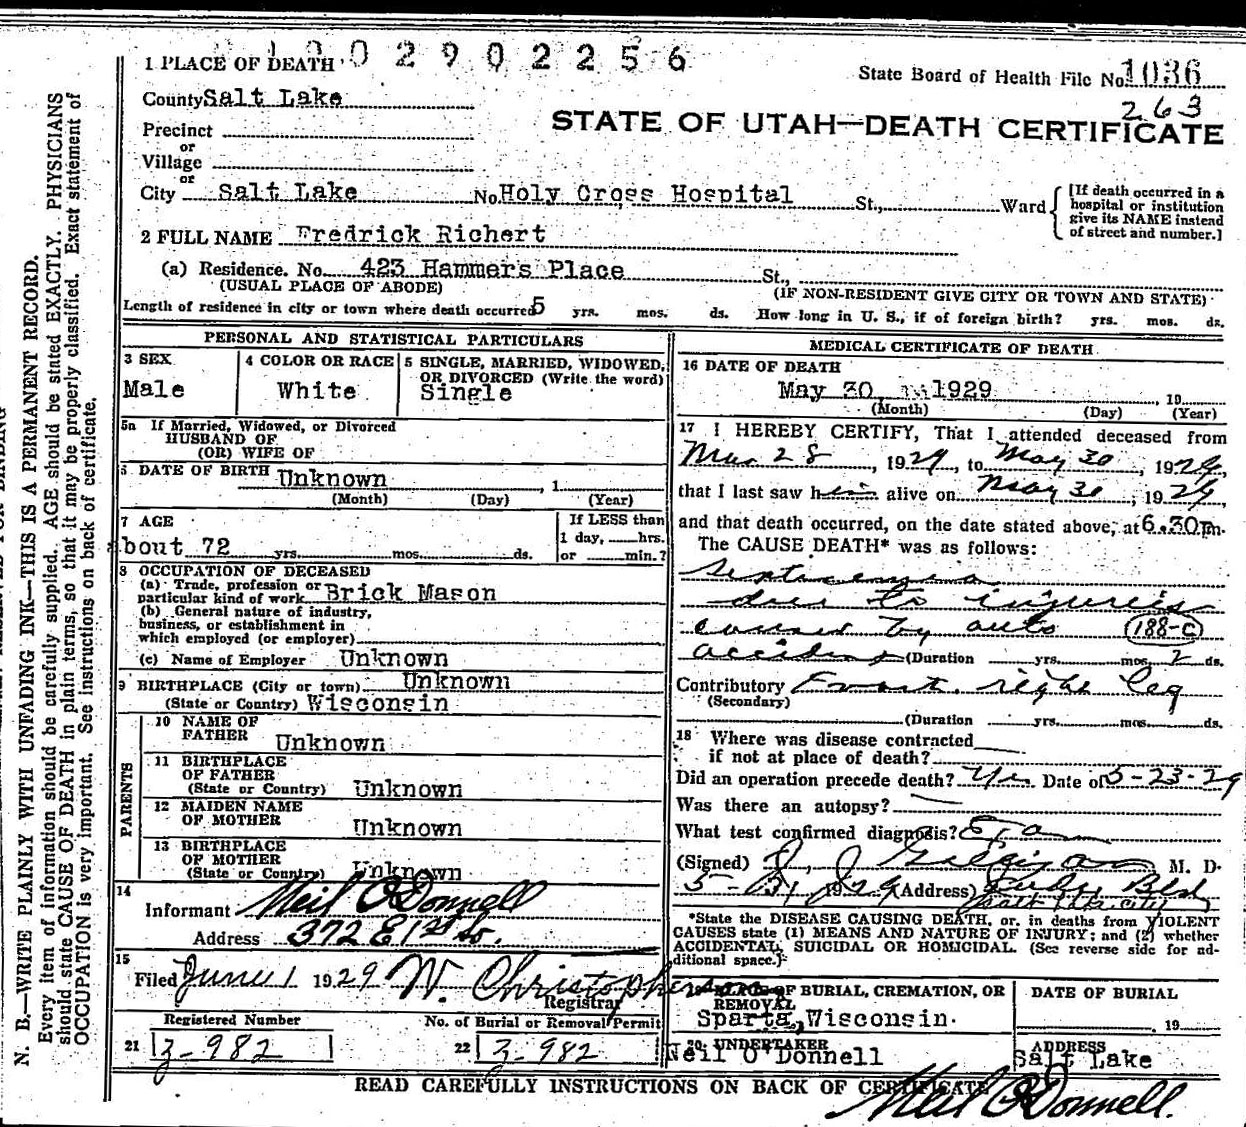 1 PLACE OF DEATH 0 2 9 0 2 2 5 6
State Board of Health File No. 1036
263
County Salt Lake
STATE OF UTAH—DEATH CERTIFICATE
Precinct
or
Village
or
City Salt Lake No. Holy Cross Hospital St., Ward
[If death occurred in a
hospital or institution
give its NAME instead
of street and number.]
2 FULL NAME Fredrick Richert
(a) Residence. No. 423 Hammers Place St.,
(USUAL PLACE OF ABODE) (IF NON-RESIDENT GIVE CITY OR TOWN AND STATE)
Length of residence in city or town where death occurred 5 yrs. mos. ds. How long in U. S., if of foreign birth? yrs. mos. ds.
PERSONAL AND STATISTICAL PARTICULARS
3 SEX
Male
4 COLOR OR RACE
White
5 SINGLE, MARRIED, WIDOWED,
OR DIVORCED (Write the word)
Single
5a If Married, Widowed, or Divorced
HUSBAND OF
(OR) WIFE OF
6 DATE OF BIRTH Unknown , 1
(Month) (Day) (Year)
7 AGE
bout 72 yrs. mos. ds.
If LESS than
1 day, hrs.
or min.?
8 OCCUPATION OF DECEASED
(a) Trade, profession or
particular kind of work Brick Mason
(b) General nature of industry,
business, or establishment in
which employed (or employer)
(c) Name of Employer Unknown
9 BIRTHPLACE (City or town) Unknown
(State or Country) Wisconsin
PARENTS
10 NAME OF
FATHER Unknown
11 BIRTHPLACE
OF FATHER
(State or Country) Unknown
12 MAIDEN NAME
OF MOTHER Unknown
13 BIRTHPLACE
OF MOTHER
(State or Country) Unknown
14
Informant Neil O'Donnell
Address 372 E 1st So.
15
Filed June 1 1929 W. Christopherson
Registrar
Registered Number
21 3-982
No. of Burial or Removal Permit
22 3-982
MEDICAL CERTIFICATE OF DEATH
16 DATE OF DEATH
May 30 1929 , 19
(Month) (Day) (Year)
17 I HEREBY CERTIFY, That I attended deceased from
Mar 28, 1929, to May 30, 1929,
that I last saw him alive on May 30, 1929,
and that death occurred, on the date stated above, at 6.30 pm.
The CAUSE DEATH* was as follows:
Septicemia
due to injuries
caused by auto 188-C
accident (Duration yrs. mos. 2 ds.
Contributory Fract. right leg
(Secondary)
(Duration yrs. mos. ds.
18 Where was disease contracted
if not at place of death?
Did an operation precede death? Yes Date of 5-23-29
Was there an autopsy?
What test confirmed diagnosis?
(Signed) M. D.
5-31, 1929 (Address)
Salt Lake City
*State the DISEASE CAUSING DEATH, or, in deaths from VIOLENT
CAUSES state (1) MEANS AND NATURE OF INJURY; and (2) whether
ACCIDENTAL, SUICIDAL OR HOMICIDAL. (See reverse side for ad-
ditional space.)
19 PLACE OF BURIAL, CREMATION, OR
REMOVAL
Sparta, Wisconsin.
DATE OF BURIAL
, 19
20 UNDERTAKER
Neil O'Donnell
ADDRESS
Salt Lake
READ CAREFULLY INSTRUCTIONS ON BACK OF CERTIFICATE
Neil O'Donnell.
N. B.—WRITE PLAINLY WITH UNFADING INK—THIS IS A PERMANENT RECORD.
Every item of information should be carefully supplied. AGE should be stated EXACTLY. PHYSICIANS
should state CAUSE OF DEATH in plain terms, so that it may be properly classified. Exact statement of
OCCUPATION is very important. See instructions on back of certificate.